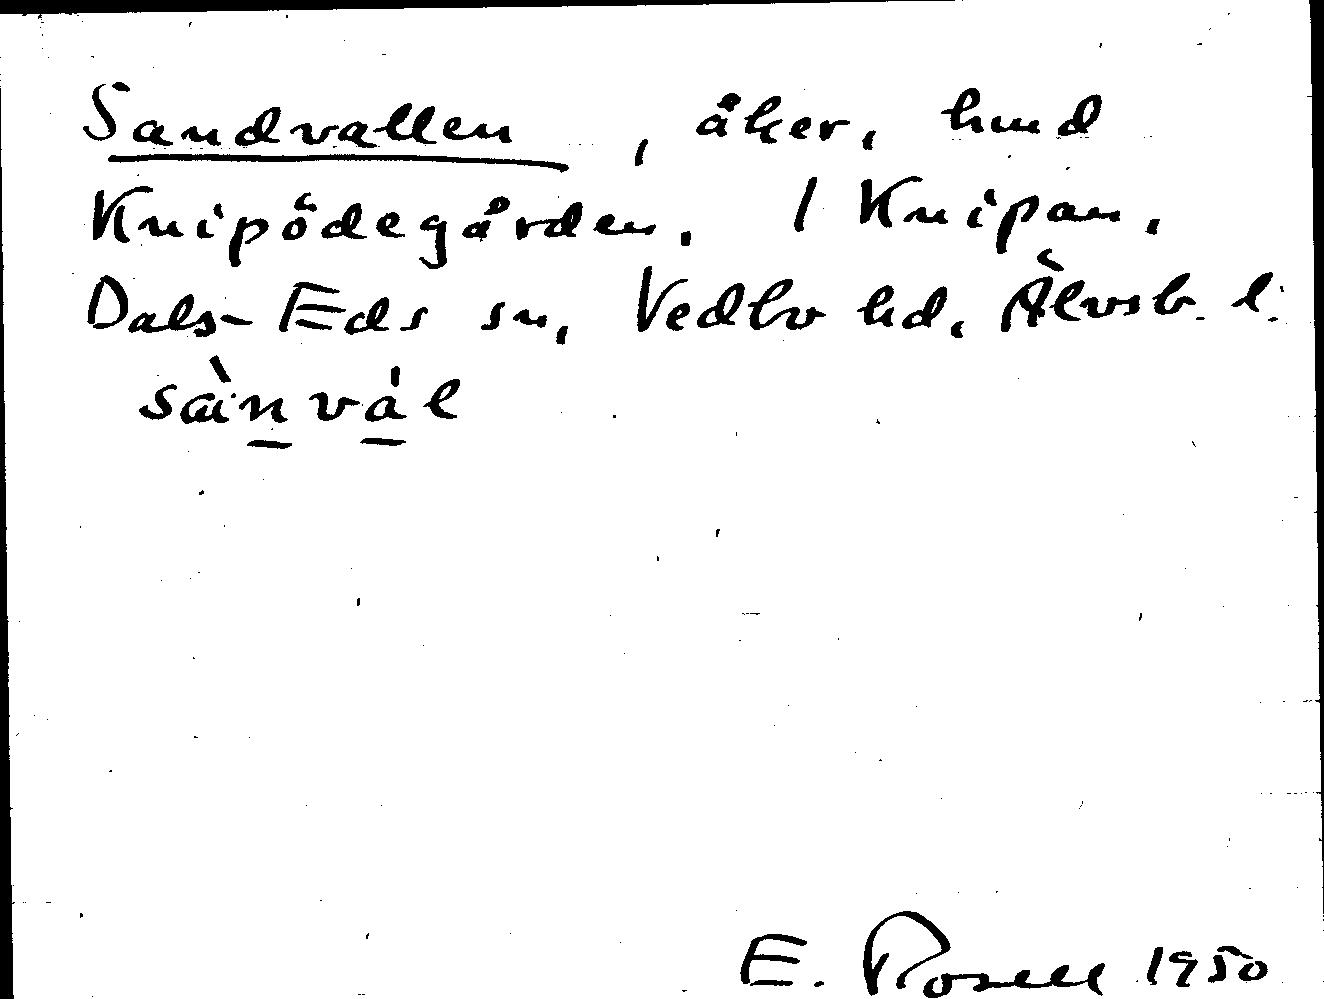 Sandvallen, åker, hmd
Knipödegården, 1 Knipan,
Dals-Eds sn, Vedbo hd, Älvsb. l.
sànvál
E. Rosell 1950